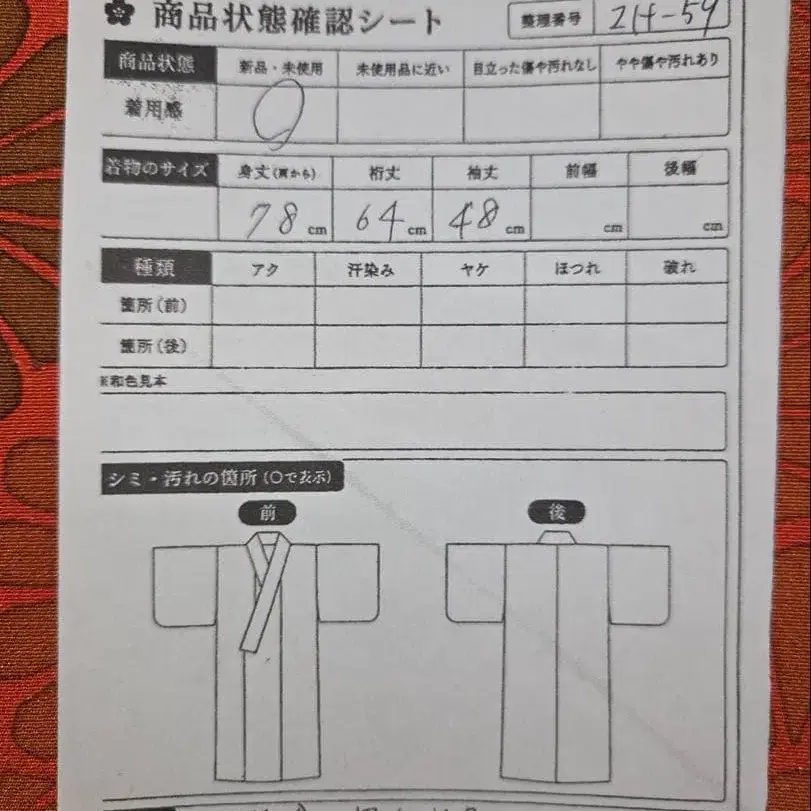 商品状態確認シート 整理番号 214-59
商品状態 新品・未使用 未使用品に近い 目立った傷や汚れなし やや傷や汚れあり
着用感
着物のサイズ 身丈(肩から) 裄丈 袖丈 前幅 後幅
78 cm 64 cm 48 cm cm cm
種類 アク 汗染み ヤケ ほつれ 破れ
箇所(前)
箇所(後)
※和色見本
シミ・汚れの箇所(〇で表示)
前 後